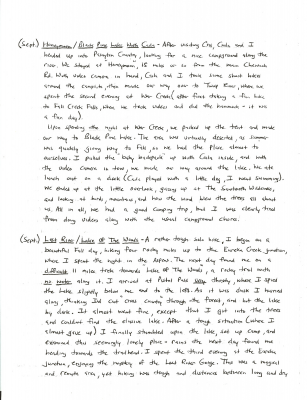 (Sept.) Honeymoon / Black Pine Lake With Cade - After visiting Cris, Cade and I
headed up into Okanogan Country, looking for a nice campground along the
river. We stayed at Honeymoon, 15 miles or so from the main
With video camera in hand, Cade and I took some short hikes
around the campsite, then made our way over to Twisp River, where we
spent the second evening at War Creek, after first taking a fun hike
to Fall Creek Falls, where we took videos and did the hammock - it was
a fun day).
Upon spending the night at War Creek, we picked up the tent and made
our way to Black Pine Lake. The area was virtually deserted, as summer
was quickly giving way to Fall so we had the place almost to
ourselves. I pulled the baby backpack up with Cade inside, and with
the video camera in tow, we made our way around the lake. We ate
lunch out on a dock (Cade played with a little dog, I went swimming).
We ended up at the little overlook, gazing up at The Sawtooth Wilderness,
and looking at birds, mountains, and how the wind blew the trees all about
us. All in all, we had a good camping trip, but I was clearly tired
from doing videos along with the usual campground chores.
(Sept.) Lost River / Lake Of The Woods - A rather tough solo hike, I began on a
beautiful Fall day, hiking four rocky miles up to the Eureka Creek junction,
where I spent the night in the aspens. The next day found me on a
difficult 11 mile trek towards Lake Of The Woods, a rocky trail with
no water along it. I arrived at Pass thirsty, where I spied
the lake slightly below me and to the left. As it was dusk I hurried
along, thinking I'd cut "cross country" through the forest, and hit the lake
by dark. It almost went fine, except that I got into the trees
and couldn't find the elusive lake. After a tough situation (where I
almost gave up) I finally stumbled upon the lake, set up camp, and
examined this seemingly lonely place - rain the next day found me
heading towards the trailhead. I spent the third evening at the Eureka
junction, enjoying the majesty of the Lost River Gorge. This was a magical
and remote area, yet hiking was tough and distances between long and dry.